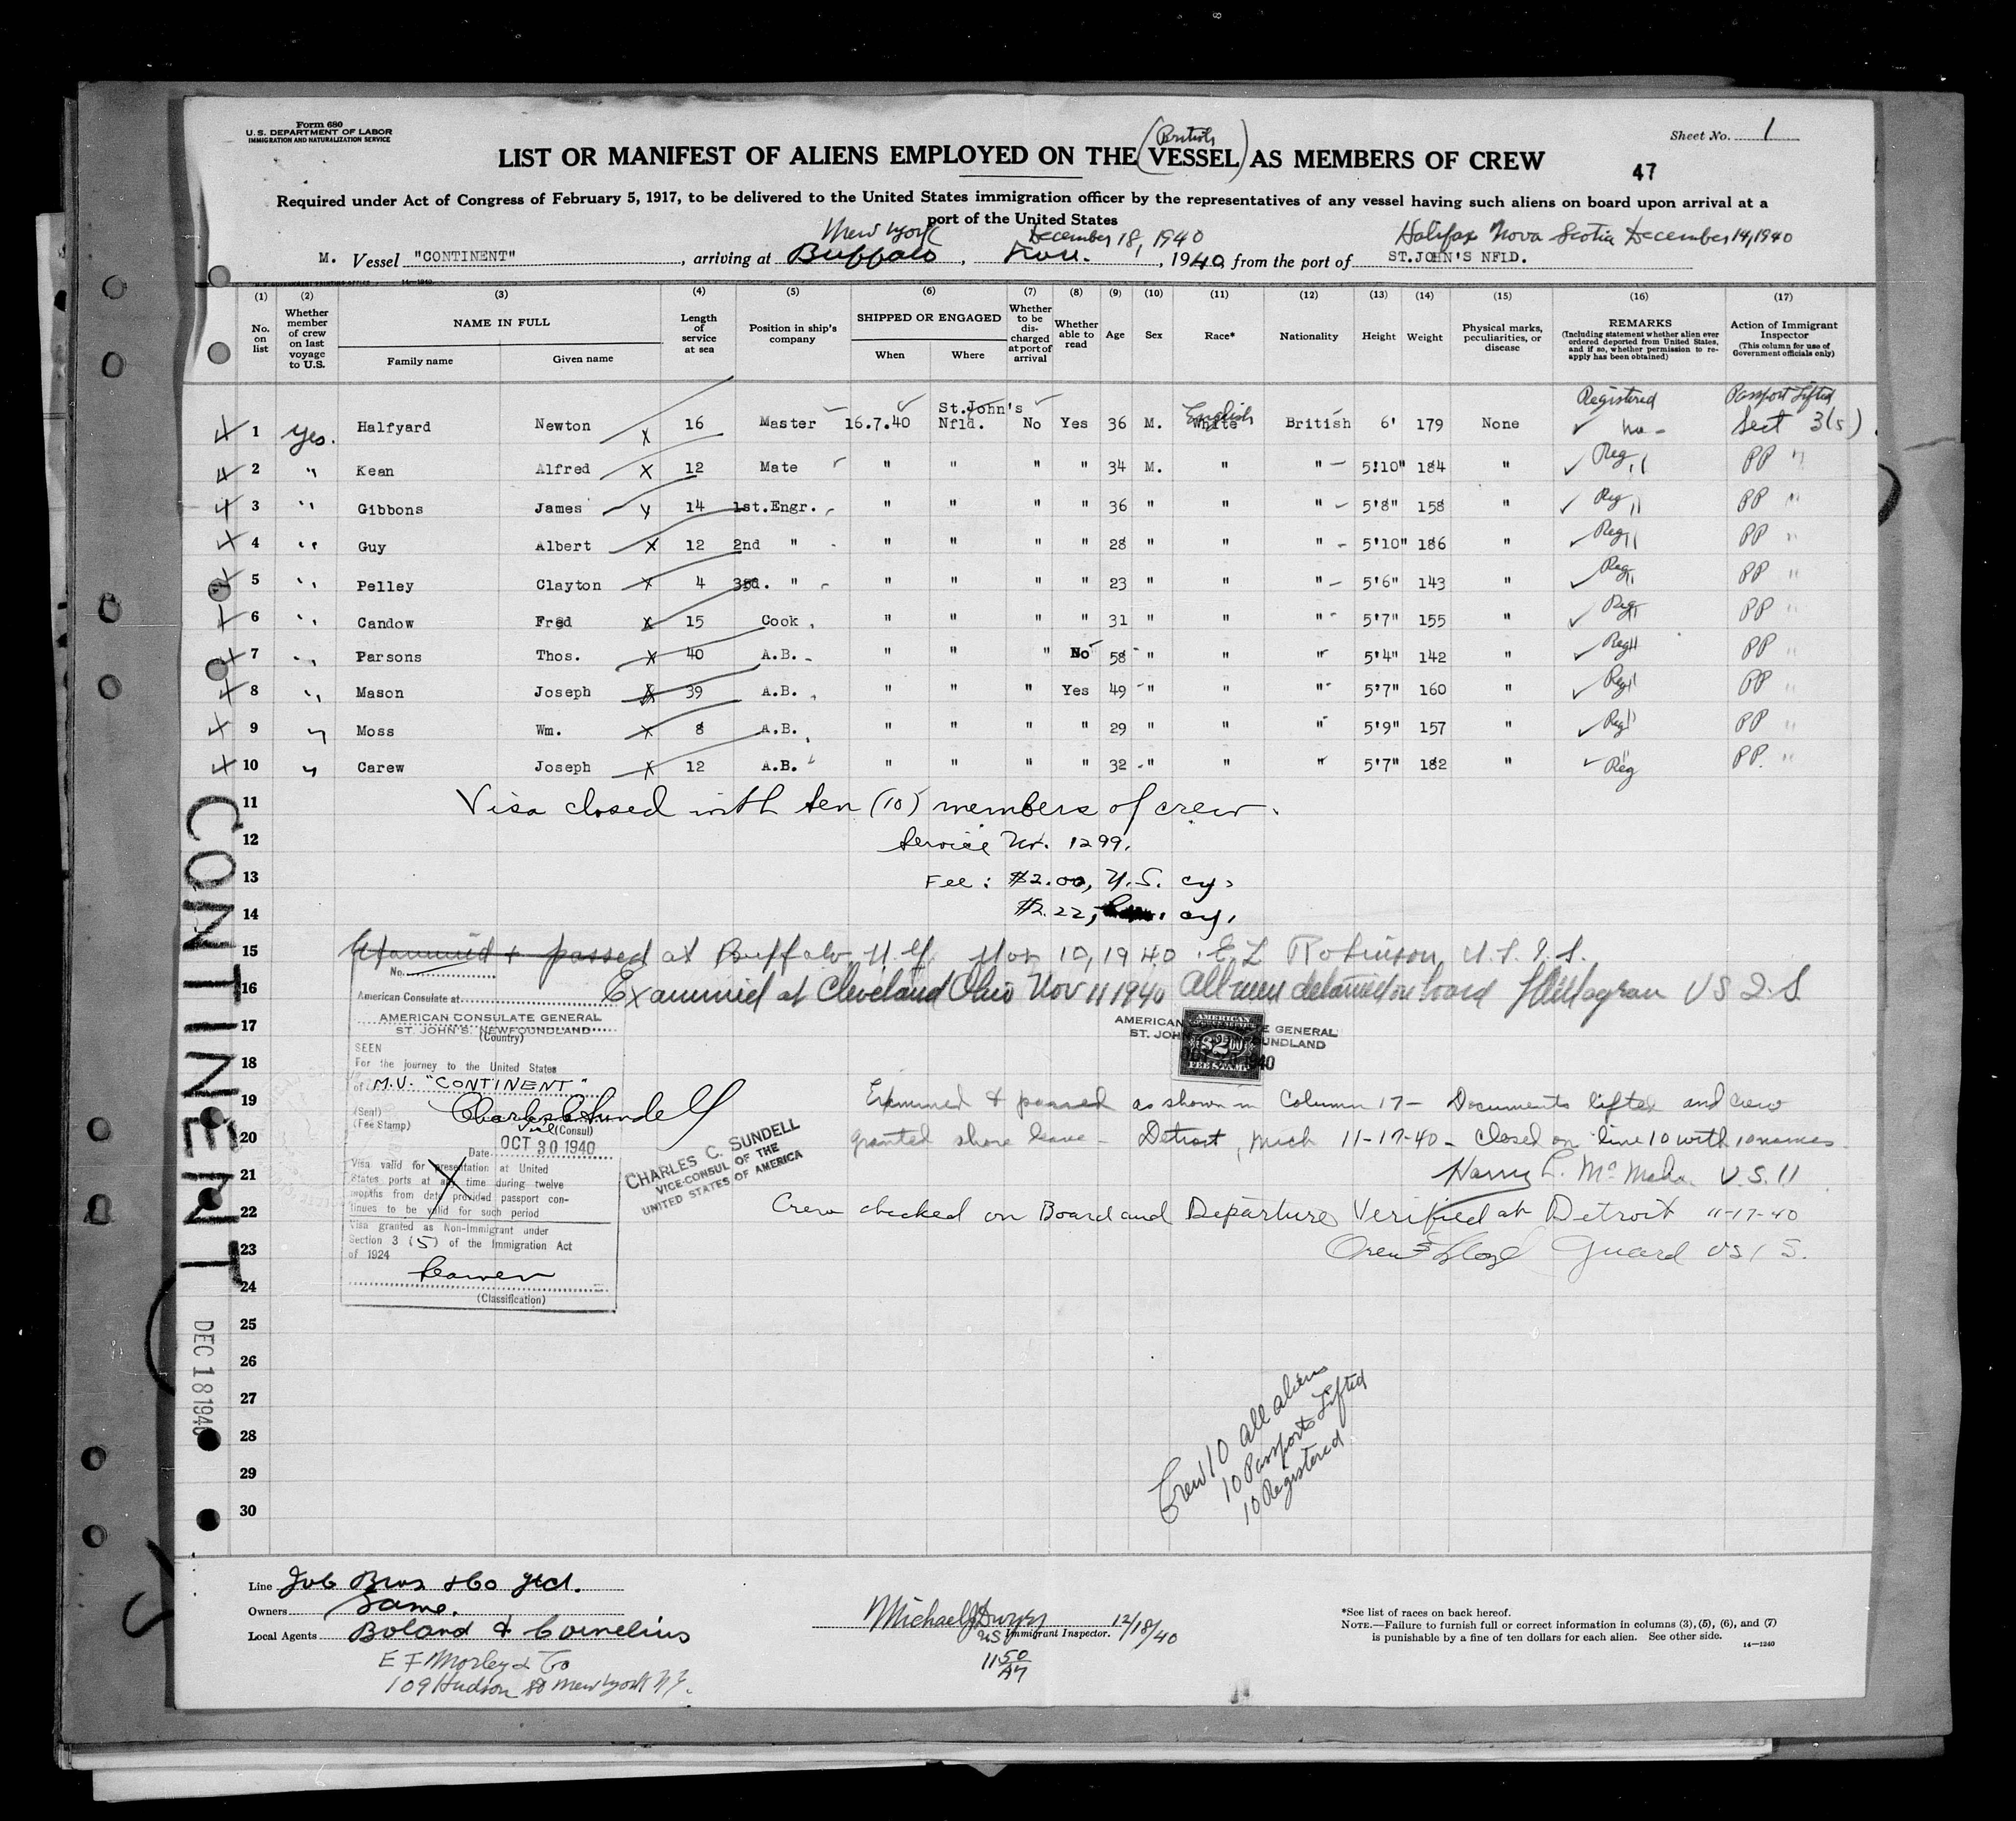 8
Form 680
U.S. DEPARTMENT OF LABOR
IMMIGRATION AND NATURALIZATION SERVICE
Sheet No. 1
(British)
LIST OR MANIFEST OF ALIENS EMPLOYED ON THE VESSEL AS MEMBERS OF CREW
47
Required under Act of Congress of February 5, 1917, to be delivered to the United States immigration officer by the representatives of any vessel having such aliens on board upon arrival at a
port of the United States
New York December 18, 1940 Halifax Nova Scotia December 14, 1940
M. Vessel "CONTINENT", arriving at Buffalo, Nov., 1940, from the port of ST.JOHN'S NFLD.
(1) (2) (3) (4) (5) (6) (7) (8) (9) (10) (11) (12) (13) (14) (15) (16) (17)
No. on list
Whether member of crew on last voyage to U.S.
NAME IN FULL
Family name Given name
Length of service at sea
Position in ship's company
SHIPPED OR ENGAGED
When Where
Whether to be discharged at port of arrival
Whether able to read
Age
Sex
Race*
Nationality
Height
Weight
Physical marks, peculiarities, or disease
REMARKS
(Including statement whether alien ever ordered deported from United States, and if so, whether permission to re-apply has been obtained)
Action of Immigrant Inspector
(This column for use of Government officials only)
Registered Passport Lifted
St.John's English
1 Yes. Halfyard Newton x 16 Master 16.7.40 Nfld. No Yes 36 M. White British 6' 179 None No - Sect 3(5)
2 " Kean Alfred x 12 Mate " " " " 34 M. " " 5'10" 184 " Reg " PP "
3 " Gibbons James x 14 1st.Engr. " " " " 36 " " " 5'8" 158 " Reg " PP "
4 " Guy Albert x 12 2nd " " " " " 28 " " " 5'10" 186 " Reg " PP "
5 " Pelley Clayton x 4 3rd. " " " " " 23 " " " 5'6" 143 " Reg " PP "
6 " Candow Fred x 15 Cook " " " " 31 " " " 5'7" 155 " Reg " PP "
7 " Parsons Thos. x 40 A.B. " " " No 58 " " " 5'4" 142 " Reg " PP "
8 " Mason Joseph x 39 A.B. " " " Yes 49 " " " 5'7" 160 " Reg " PP "
9 " Moss Wm. x 8 A.B. " " " " 29 " " " 5'9" 157 " Reg " PP "
10 " Carew Joseph x 12 A.B. " " " " 32 " " " 5'7" 182 " Reg " PP. "
11 Visa closed with ten (10) members of crew.
12 Service No. 1299.
13 Fee: $2.00, U.S. cy.
14 $2.22, cy.
15 Examined & passed at Buffalo N.Y. Nov 10, 1940. E L Robinson, U.S.I.S.
No.
16 Examined at Cleveland Ohio Nov 11 1940 All men detained on board US I.S.
American Consulate at
17 AMERICAN CONSULATE GENERAL
ST. JOHN'S, NEWFOUNDLAND
(Country)
AMERICAN GENERAL
ST. JOHN UNDLAND
AMERICAN
$2.00
FEE STAMP
1940
18 SEEN
For the journey to the United States
of M.V. "CONTINENT"
19 Examined & passed as shown in Column 17 - Documents lifted and crew
(Seal)
(Fee Stamp)
Charles C. Sundell
Vice (Consul)
20 granted shore leave - Detroit, Mich 11-17-40 - Closed on line 10 with 10 names
Date OCT 30 1940
CHARLES C. SUNDELL
VICE-CONSUL OF THE
UNITED STATES OF AMERICA
21 Harry L. McMahn U.S.II
Visa valid for presentation at United
States ports at any time during twelve
months from date provided passport con-
tinues to be valid for such period
22 Crew checked on Board and Departure Verified at Detroit 11-17-40
Visa granted as Non-Immigrant under
Section 3 (5) of the Immigration Act
of 1924
23 Oren Guard US I S.
Seamen
24 (Classification)
25
26
27
28
29
30
CONTINENT
DEC 18 1940
Crew 10 all aliens
10 Passports Lifted
10 Registered
Line Job Bros & Co Ltd.
Owners Same.
Local Agents Boland & Cornelius
E F Morley & Co
109 Hudson St New York N.Y.
Michael J Dwyer 12/18/40
US Immigrant Inspector.
11 50
AM
*See list of races on back hereof.
NOTE.—Failure to furnish full or correct information in columns (3), (5), (6), and (7)
is punishable by a fine of ten dollars for each alien. See other side.
14—1240